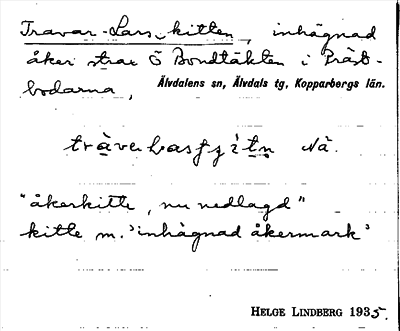 Travar-Lars-kitten, inhägnad
åker strax Ö Bondtäkten i Präst-
bodarna, Älvdalens sn, Älvdals tg, Kopparbergs län.
Nä.
"åkerkitte, nu nedlagd"
kitte m. 'inhägnad åkermark'
HELGE LINDBERG 1935.